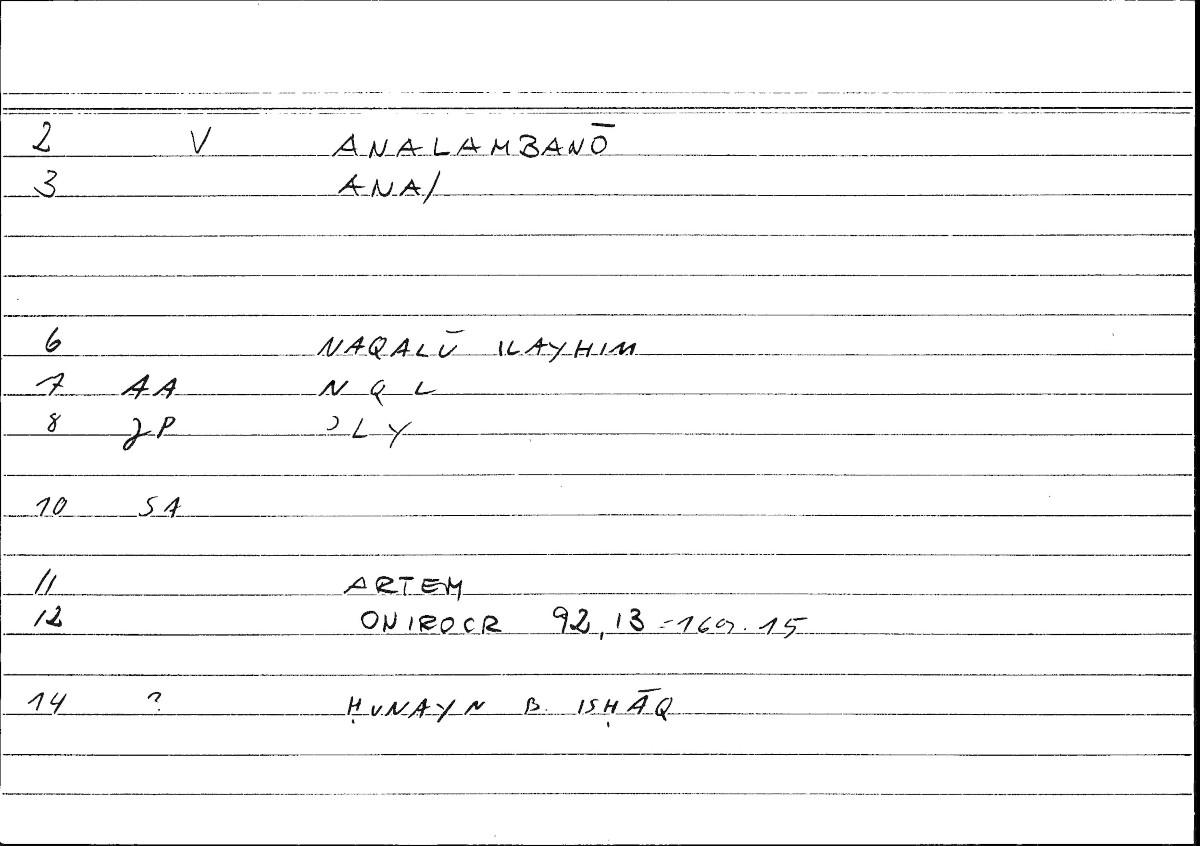 2 V ANALAMBANŌ
3 ANA/
6 NAQALŪ ILAYHIM
7 AA N Q L
8 JP ʾ L Y
10 SA
11 ARTEM
12 ONIROCR 92,13 = 169.15
14 ? ḤUNAYN B. ISḤĀQ